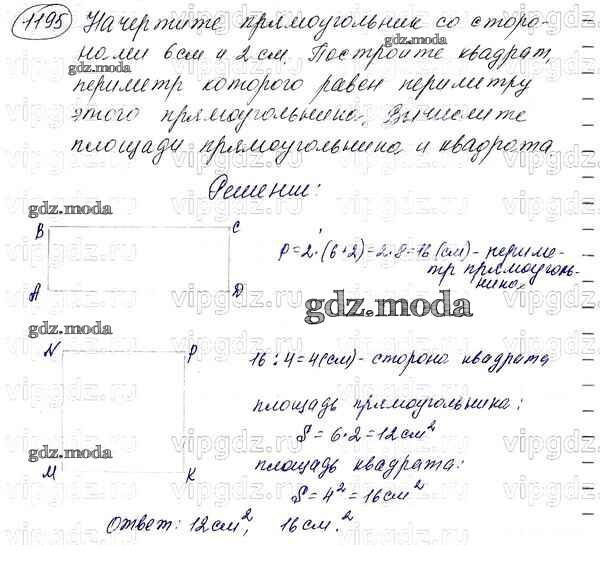 1195 Начертите прямоугольник со сторо-
нами 6 см и 2 см. Постройте квадрат,
gdz.moda gdz.moda
периметр которого равен периметру
этого прямоугольника. Вычислите
gdz.moda
площади прямоугольника и квадрата
Решении:
gdz.moda
B C
P = 2·(6+2)=2·8=16(см)- периме-
тр прямоуголь-
ника.
A D
gdz.moda
gdz.moda
N P
16:4=4(см)- сторона квадрата
площадь прямоугольника:
S = 6·2=12см²
gdz.moda
площадь квадрата:
M K
S=4²=16см²
Ответ: 12см², 16см.²
vipgdz.ru